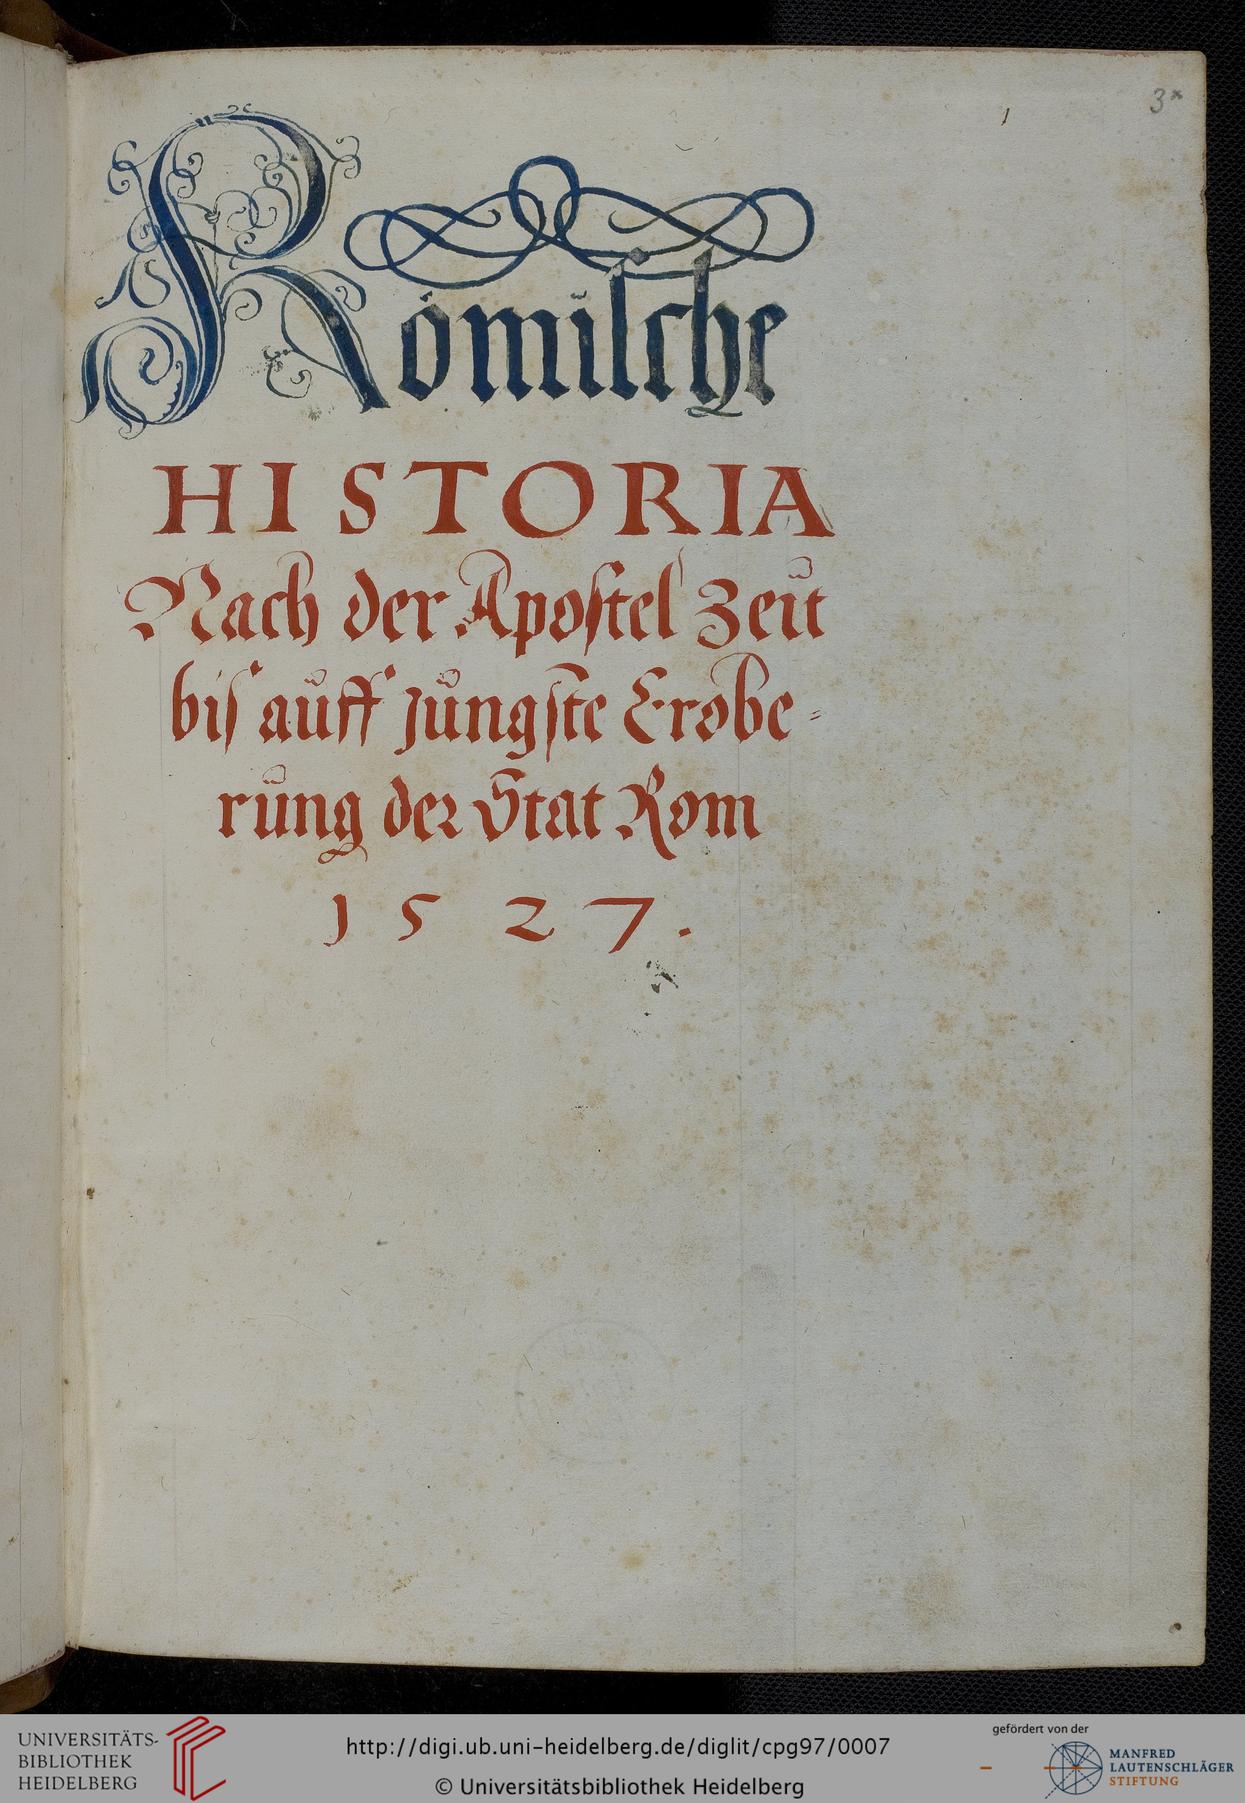 3*
Römische
HISTORIA
Nach der Apostel Zeit
bis auff jüngste Erobe-
rung der Stat Rom
1527.
UNIVERSITÄTS-
BIBLIOTHEK
HEIDELBERG
http://digi.ub.uni-heidelberg.de/diglit/cpg97/0007
© Universitätsbibliothek Heidelberg
gefördert von der
MANFRED
LAUTENSCHLÄGER
STIFTUNG